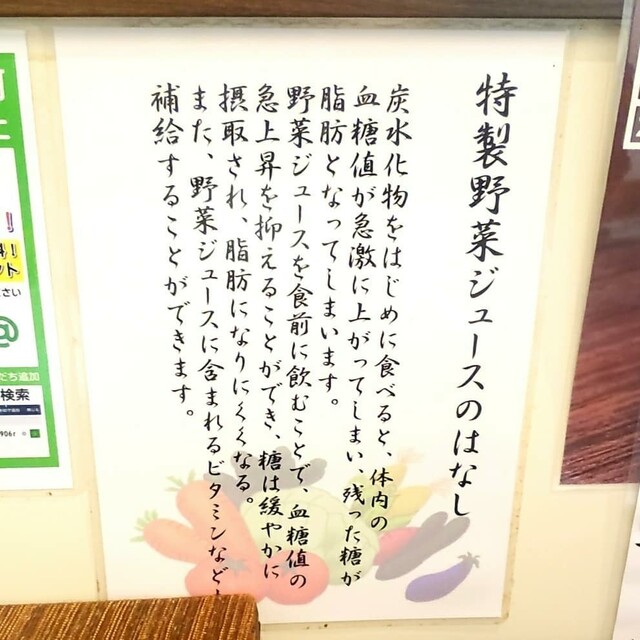 特製野菜ジュースのはなし
炭水化物をはじめに食べると、体内の
血糖値が急激に上がってしまい、残った糖が
脂肪となってしまいます。
野菜ジュースを食前に飲むことで、血糖値の
急上昇を抑えることができ、糖は緩やかに
摂取され、脂肪になりにくくなる。
また、野菜ジュースに含まれるビタミンなども
補給することができます。
！
ット
ださい
@
だち追加
検索
906r